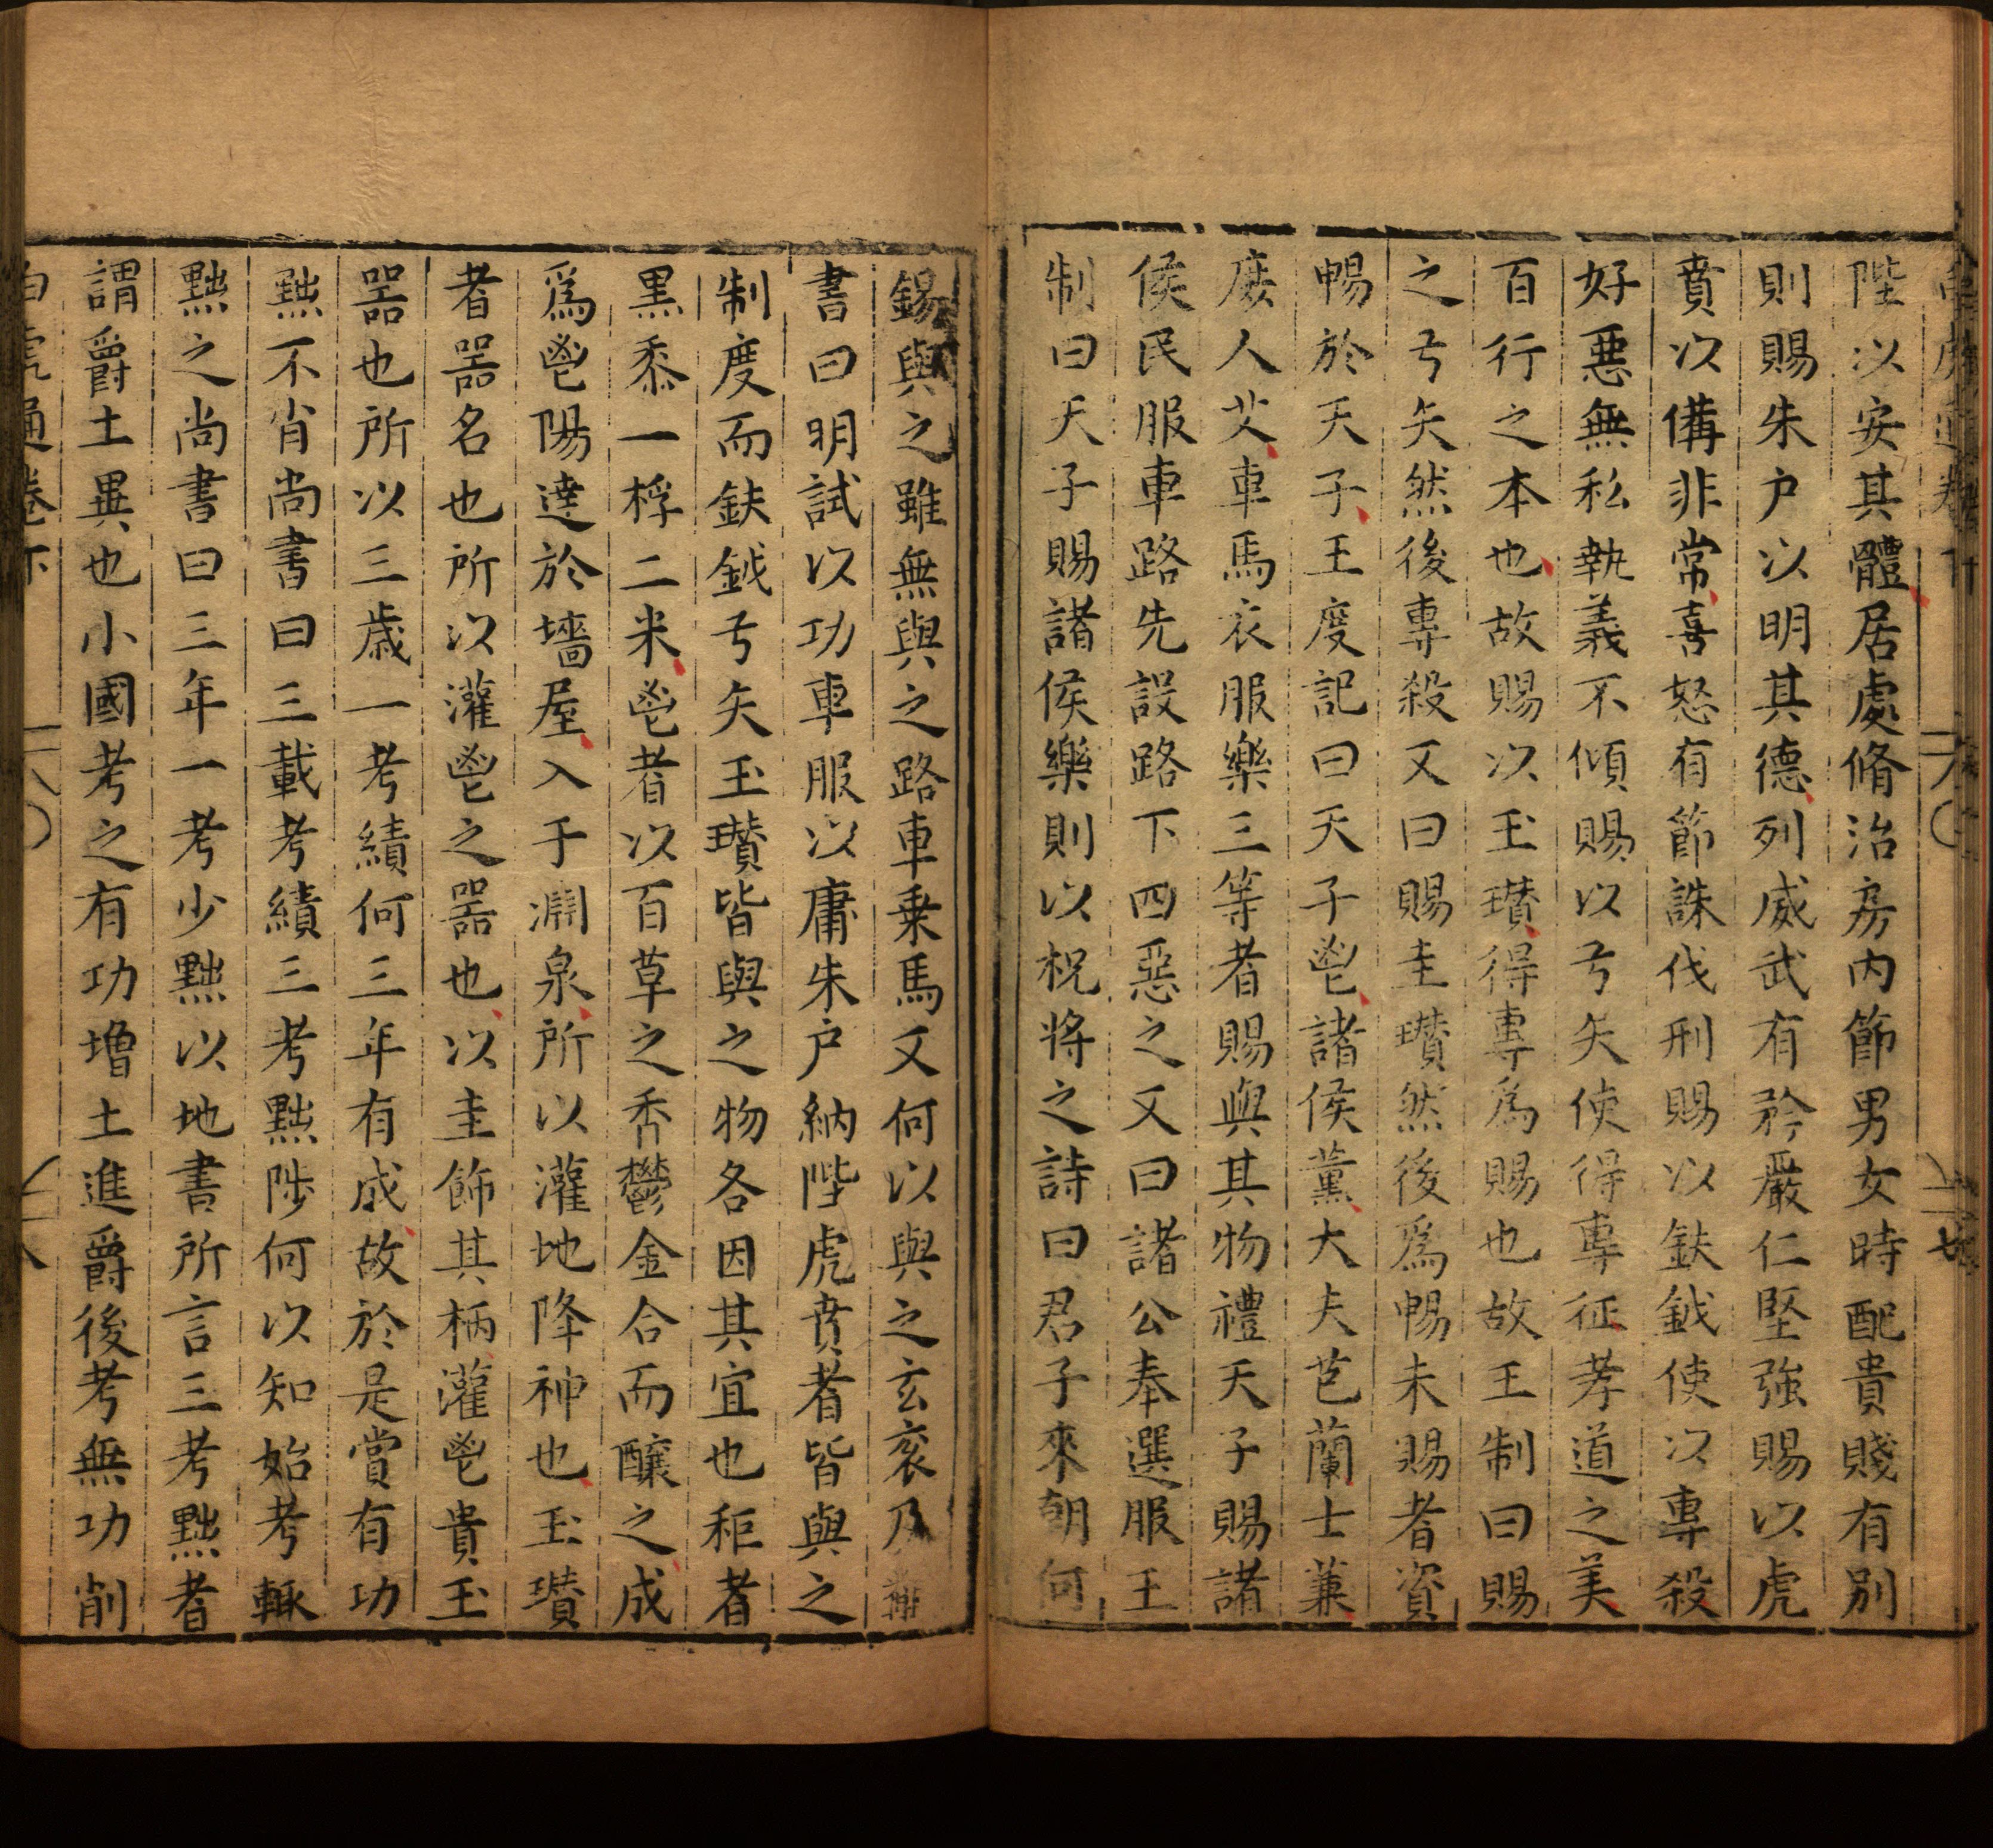 陛以安其體居處脩治房内節男女時配貴賤有别
則賜朱户以明其德列威武有矜嚴仁堅強賜以虎
賁以備非常喜怒有節誅伐刑賜以鈇鉞使以專殺
好惡無私執義不傾賜以弓矢使得專征孝道之美
百行之本也故賜以玉瓚得專爲賜也故王制曰賜
之弓矢然後專殺又曰賜圭瓚然後爲暢未賜者資
暢於天子王度記曰天子鬯諸侯薰大夫芑蘭士蒹
庶人艾車馬衣服樂三等者賜與其物禮天子賜諸
侯民服車路先設路下四惡之又曰諸公奉選服王
制曰天子賜諸侯樂則以柷將之詩曰君子來朝何
錫與之雖無與之路車乗馬又何以與之玄衮及黼
書曰明試以功車服以庸朱户納陛虎賁者皆與之
制度而鈇鉞弓矢玉瓚皆與之物各因其宜也秬者
黒黍一稃二米鬯者以百草之香鬱金合而釀之成
爲鬯陽達於墻屋入于淵泉所以灌地降神也玉瓚
者噐名也所以灌鬯之噐也以圭飾其柄灌鬯貴玉
噐也所以三歲一考績何三年有成故於是賞有功
黜不肖尚書曰三載考績三考黜陟何以知始考輒
黜之尚書曰三年一考少黜以地書所言三考黜者
謂爵土異也小國考之有功增土進爵後考無功削
白虎通卷下